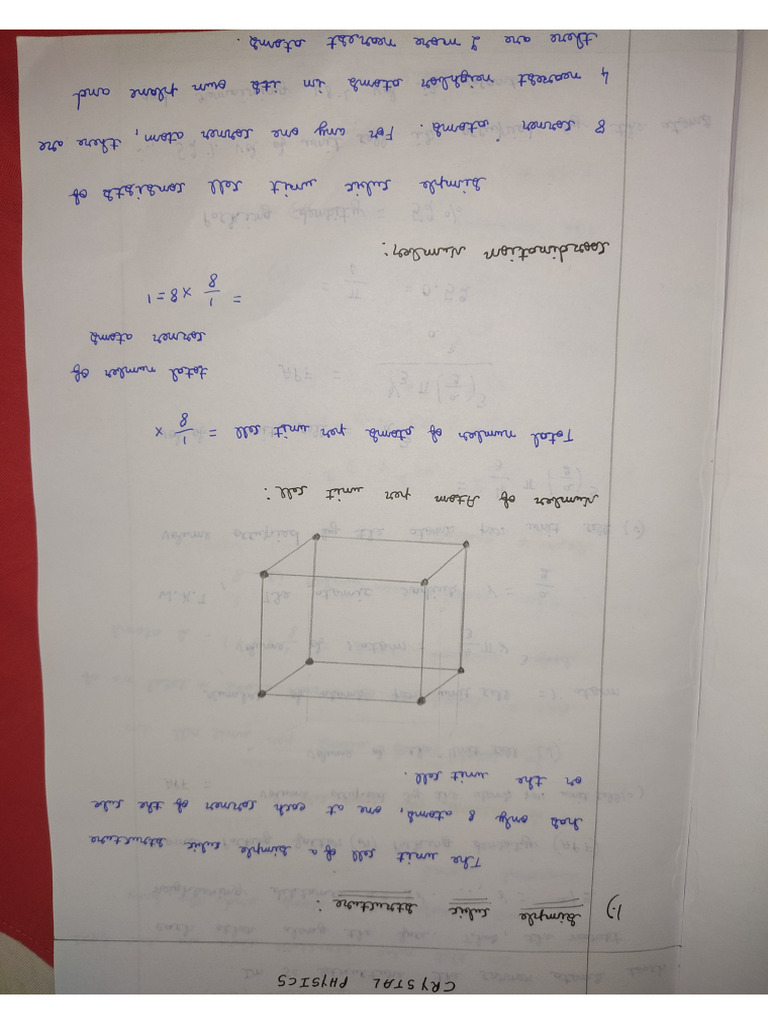 CRYSTAL PHYSICS
1.) Simple cubic structure:
The unit cell of a simple cubic structure
has only 8 atoms, one at each corner of the cube
or the unit cell.
Number of Atom per unit cell:
Total number of atoms per unit cell = 1/8 ×
total number of
corner atoms
= 1/8 × 8 = 1
Coordination Number:
Simple cubic unit cell consists of
8 corner atoms. For any one corner atom, there are
4 nearest neighbor atoms in its own plane and
there are 2 more nearest atoms.